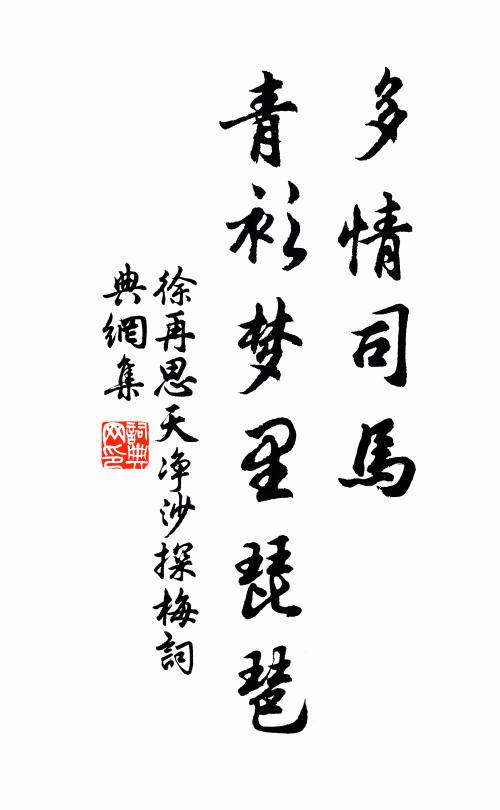 多情司馬
青衫梦里琵琶
徐再思天净沙探梅詞
典網集
詞典网印